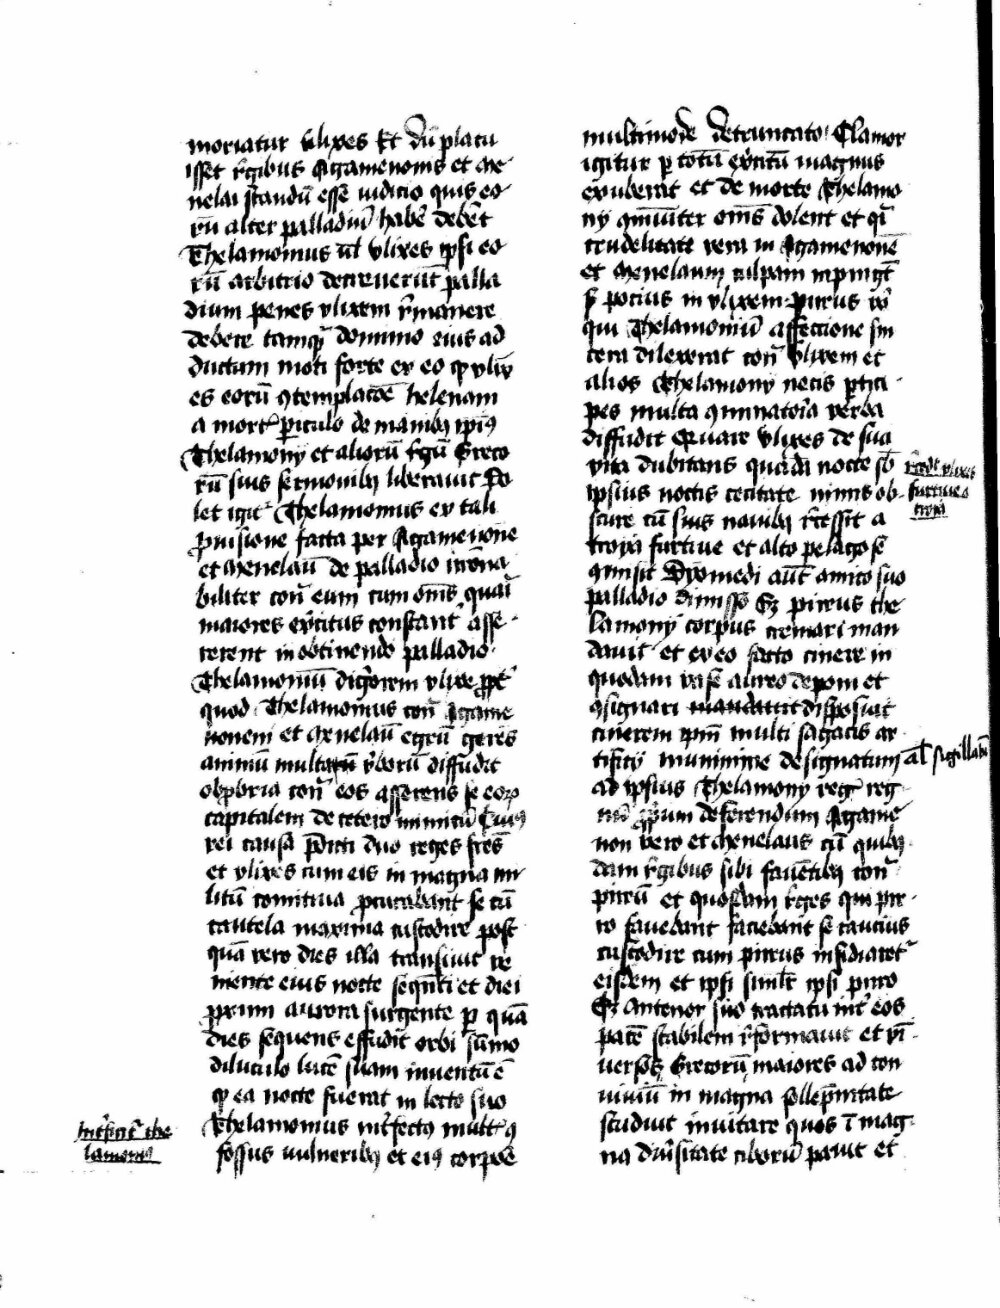 moriatur vlixes Et dū placu
isset rˀgibus Agamenonis et me
nelai standū esse iudicio quis eo
rū alter palladiū habeˀ debet
Thelamonius ul vlixes ipsi eo
rū arbitrio decreuerūt palla
dium penes vlixem rˀmanere
debere tamqˀ domino eius ad
ductum moti forte ex eo qꝫ vlix
es eorū ꝯtemplacōe helenam
a mortˀ piculo de manibꝫ ipīꝰ
Thelamonÿ et aliorū rˀgū Greco
rū suis sermonibꝫ liberauit Do
let igitˀ Thelamonius ex tali
ꝓuisione facta per Agamenone
et Menelaū de palladio irrōna
biliter conˀ eum cum om̄s quaˀ
maiores exˀcitus constantˀ asse
rerent in obtinendo palladio
Thelamoniū digˀorem vlixe ꝓptˀ
quod Thelamonius conˀ Agame
nonem et Menelaū egrū gerēs
animū multarū vˀborū diffudit
obꝓbria conˀ eos asserens se eoꝝ
capitalem de cetero inimicū Cuiꝰ
rei causa p̄dicti duo reges frēs
et vlixes cum eis in magna mi
litū comitiua ꝓcurabant se cū
cautela maxima custodire post
quā vero dies illa transiuit ve
niente eius nocte seqn̄ti et diei
ꝓximi aurora surgente ꝑ quā
dies sequens effudit orbi sūmo
diluculo lucē suam inuentū ē
qꝫ ea nocte fuerat in lecto suo
Thelamonius intˀfectꝰ multˀ ꝯ
fossus vulneribꝫ et eiꝰ corpore
Intˀficitˀ the
lamoniꝰ
multimode detruncato Clamor
igitur ꝑ totū exˀcitū magnus
exuberat et de morte Thelamo
nÿ ꝯmuniter om̄s dolent et qˀ
crudelitate vera in Agamenonē
et Menelaum culpam inpingūt
sˀ pocius in vlixem Pirus vˀo
qui Thelamoniū affectione sin
cera dilexerat conˀ vlixem et
alios Thelamonÿ necis ꝑtici
pes multa ꝯminatoria verba
diffudit Quare vlixes de sua
vita dubitans quadā nocte sb
ipsius noctis cecitate nimis ob
scure cū suis nauibꝫ rˀcessit a
troya furtiue et alto pelago se
ꝯmisit Dyomedi autˀ amico suo
palladio dimisso Sꝫ pirrus the
lamonÿ corpus cremari man
dauit et ex eo facto cinere in
quodam vase aureo deponi et
ꝯsignari mandauit disposuit
cinerem ipm̄ multi sagacis ar
tificÿ munimine designatum
al sigillatū
ad ipsius Thelamonÿ regˀ reg
nū ꝓprium deferendum Agame
non vero et Menelaus cū quibꝫ
dam rˀgibus sibi fauentibꝫ conˀ
pirrū et quosdam rˀges qui pir
ro fauebant faciebant se caucius
custodire cum pirrus insidiaretˀ
eisdem et ipsi similˀ ipsi pirro
Sꝫ Antenor suo tractatu intˀ eos
pacē stabilem rˀformauit et vni
uersos Grecorū maiores ad con
uiuiū in magna sollempnitate
studuit inuitare quos ī mag
na diuˀsitate ciborū pauit et
rˀcedit vlixes
furtiue a
troya